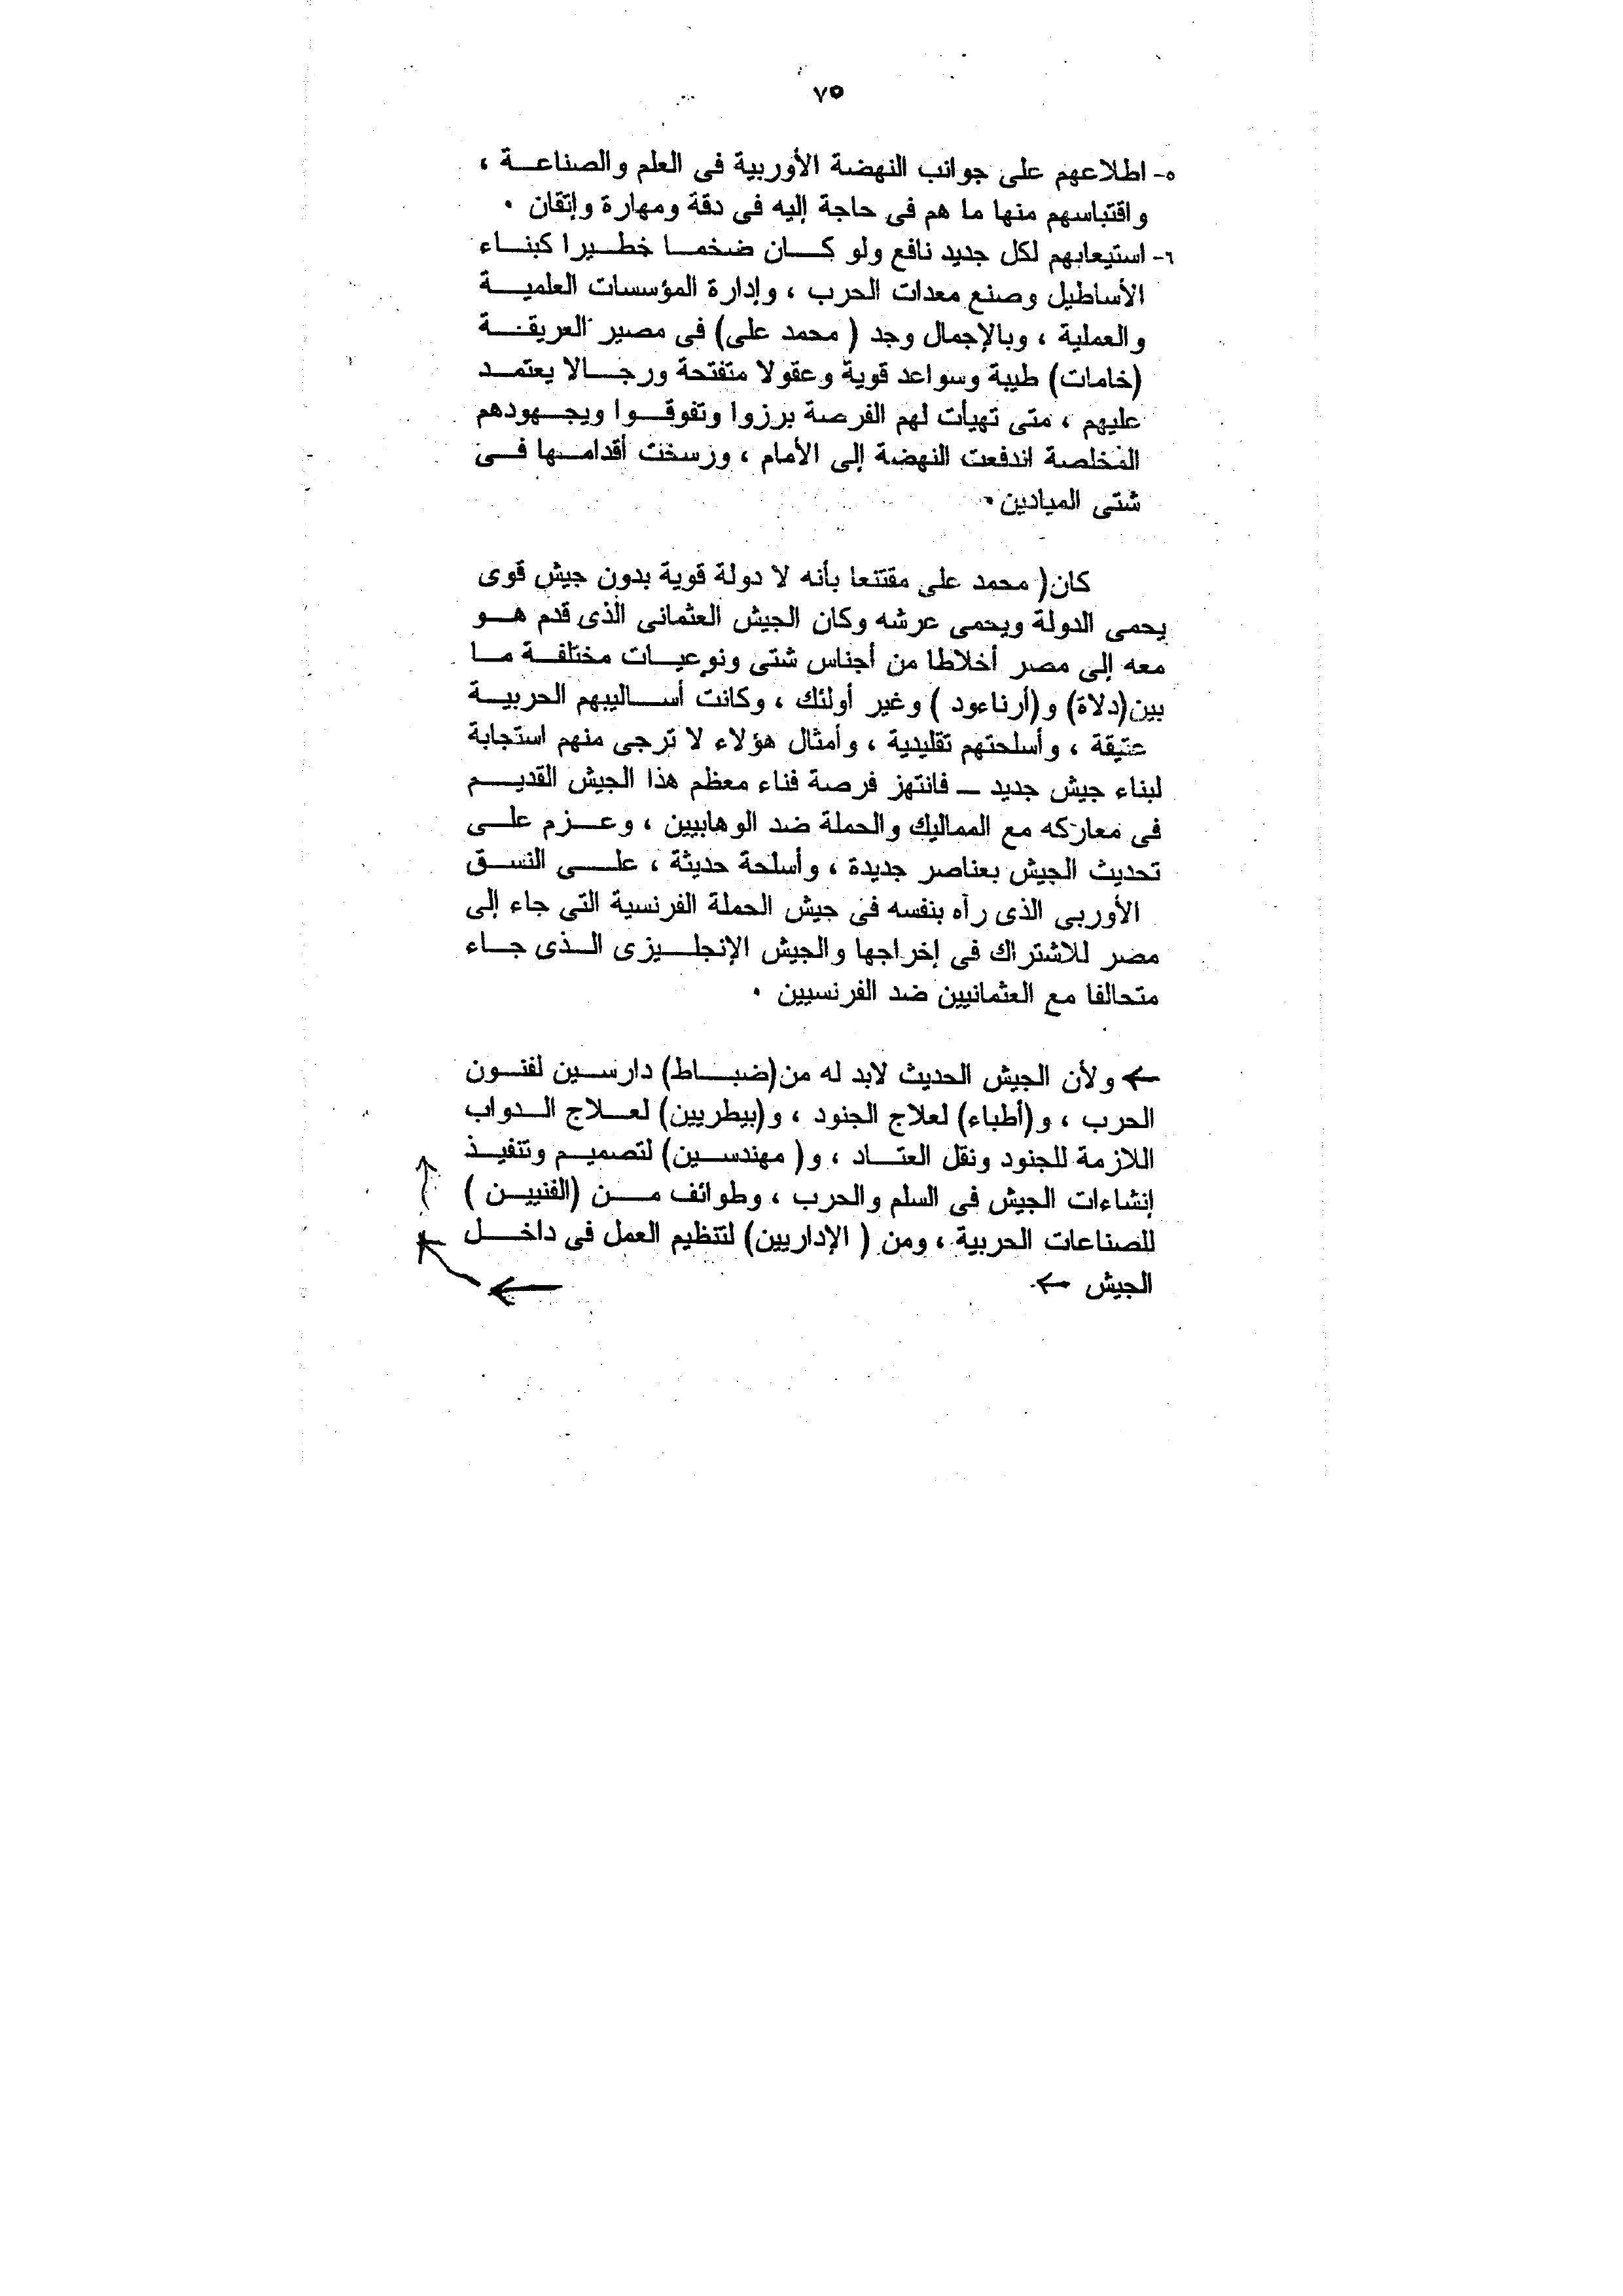 ٧٥
٥- اطلاعهم على جوانب النهضة الأوربية فى العلم والصناعة ،
واقتباسهم منها ما هم فى حاجة إليه فى دقة ومهارة وإتقان ٠
٦- استيعابهم لكل جديد نافع ولو كان ضخما خطيرا كبناء
الأساطيل وصنع معدات الحرب ، وإدارة المؤسسات العلمية
والعملية ، وبالإجمال وجد ( محمد على) فى مصير العريقة
(خامات) طيبة وسواعد قوية وعقولا متفتحة ورجالا يعتمد
عليهم ، متى تهيأت لهم الفرصة برزوا وتفوقوا وبجهودهم
المخلصة اندفعت النهضة إلى الأمام ، ورسخت أقدامها فى
شتى الميادين ٠
كان( محمد على مقتنعا بأنه لا دولة قوية بدون جيش قوى
يحمى الدولة ويحمى عرشه وكان الجيش العثمانى الذى قدم هو
معه إلى مصر أخلاطا من أجناس شتى ونوعيات مختلفة ما
بين(دلاة) و(أرناءود ) وغير أولئك ، وكانت أساليبهم الحربية
عتيقة ، وأسلحتهم تقليدية ، وأمثال هؤلاء لا ترجى منهم استجابة
لبناء جيش جديد ــ فانتهز فرصة فناء معظم هذا الجيش القديم
فى معاركه مع المماليك والحملة ضد الوهابيين ، وعزم على
تحديث الجيش بعناصر جديدة ، وأسلحة حديثة ، على النسق
الأوربى الذى رآه بنفسه فى جيش الحملة الفرنسية التى جاء إلى
مصر للاشتراك فى إخراجها والجيش الإنجليزى الذى جاء
متحالفا مع العثمانيين ضد الفرنسيين ٠
ولأن الجيش الحديث لابد له من(ضباط) دارسين لفنون
الحرب ، و(أطباء) لعلاج الجنود ، و(بيطريين) لعلاج الدواب
اللازمة للجنود ونقل العتاد ، و( مهندسين) لتصميم وتنفيذ
إنشاءات الجيش فى السلم والحرب ، وطوائف من (الفنيين )
للصناعات الحربية ، ومن ( الإداريين) لتنظيم العمل فى داخل
الجيش